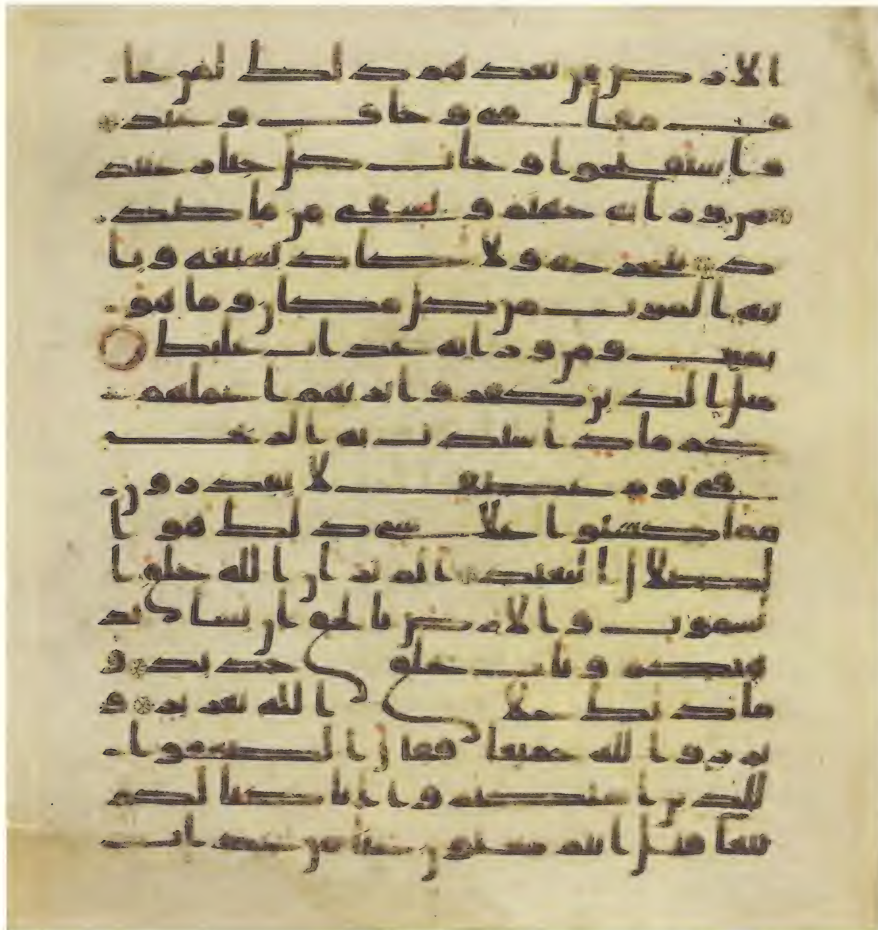 الارض من بعدهم ذلك لمن خا
ف مقامي وخاف وعيد
واستفتحوا وخاب كل جبار عنيد
من ورائه جهنم ويسقى من ما صديد
يتجرعه ولا يكاد يسيغه ويا
تيه الموت من كل مكان وما هو
بميت ومن ورائه عذاب غليظ
مثل الذين كفروا بربهم اعملهم
كرماد اشتدت به الريح
في يوم عاصف لا يقدرون
مما كسبوا على شي ذلك هو ا
لضلل البعيد الم تر ان الله خلق ا
لسموت والارض بالحق ان يشا يذ
هبكم ويات بخلق جديد و
ما ذلك على الله بعزيز و
برزوا لله جميعا فقال الضعفوا
للذين استكبروا انا كنا لكم
تبعا فهل انتم مغنون عنا من عذاب